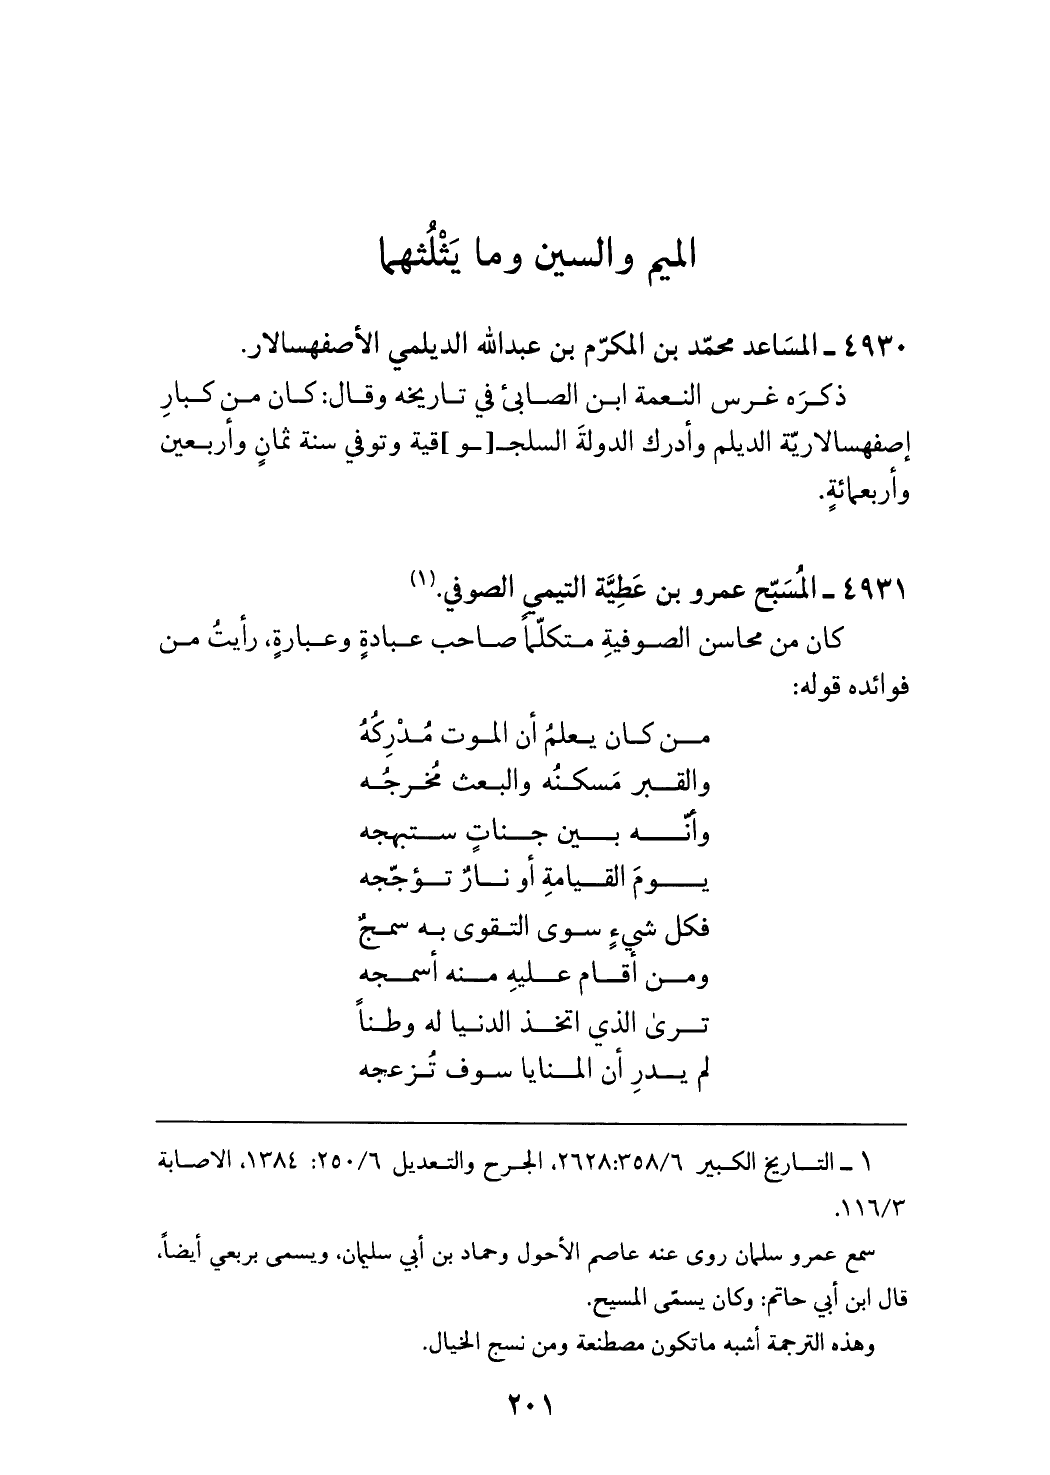 الميم والسين وما يَثْلُثهما
٤٩٣٠ ـ المسَاعد محمّد بن المكرّم بن عبدالله الديلمي الأصفهسالار.
ذكرَه غرس النعمة ابن الصابئ في تاريخه وقال: كان من كبارِ
إصفهسالاريّة الديلم وأدرك الدولةَ السلجـ[ـو]قية وتوفي سنة ثمانٍ وأربعين
وأربعمائةٍ.
٤٩٣١ ـ المُسَبّح عمرو بن عَطِيَّة التيمي الصوفي.(١)
كان من محاسن الصوفيةِ متكلّماً صاحب عبادةٍ وعبارةٍ، رأيتُ من
فوائده قوله:
من كان يعلمُ أن الموت مُدْرِكُهُ
والقبر مَسكنُه والبعث مُخرجُه
وأنّه بين جناتٍ ستبهجه
يومَ القيامةِ أو نارٌ تؤجّجه
فكل شيءٍ سوى التقوى به سمجٌ
ومن أقام عليهِ منه أسمجه
ترىٰ الذي اتخذ الدنيا له وطناً
لم يدرِ أن المنايا سوف تُزعجه
١ ـ التاريخ الكبير ٣٥٨/٦:٢٦٢٨، الجرح والتعديل ٢٥٠/٦: ١٣٨٤، الاصابة
١١٦/٣.
سمع عمرو سلمان روى عنه عاصم الأحول وحماد بن أبي سليمان، ويسمى بربعي أيضاً،
قال ابن أبي حاتم: وكان يسمّى المسيح.
وهذه الترجمة أشبه ماتكون مصطنعة ومن نسج الخيال.
٢٠١